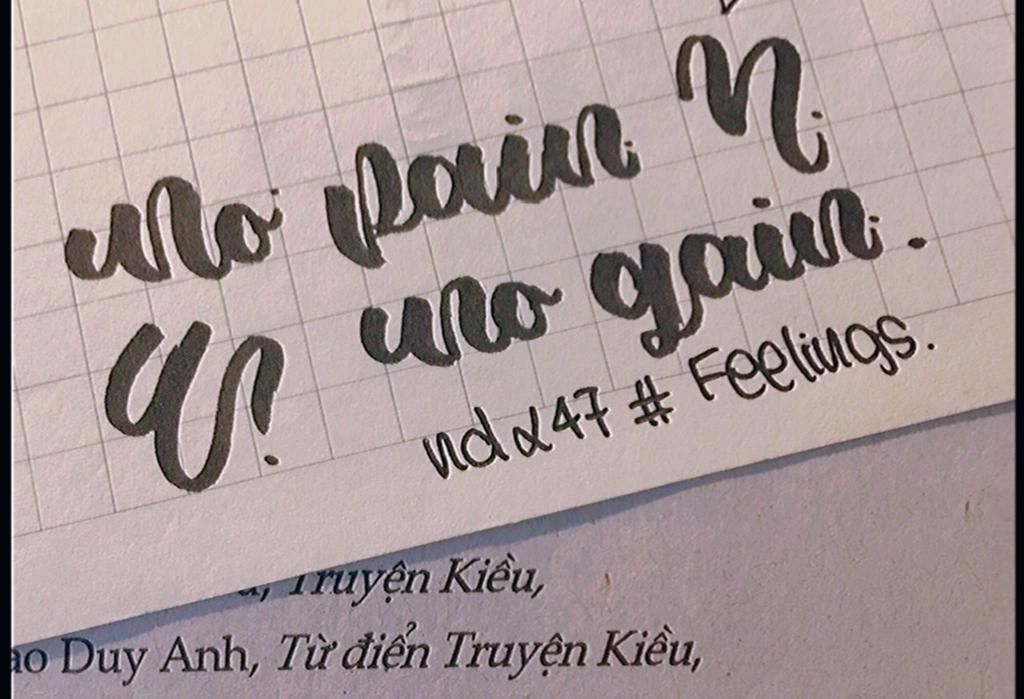 no pain
n
no gain.
nd α 47 # Feelings.
Truyện Kiều,
Duy Anh, Từ điển Truyện Kiều,